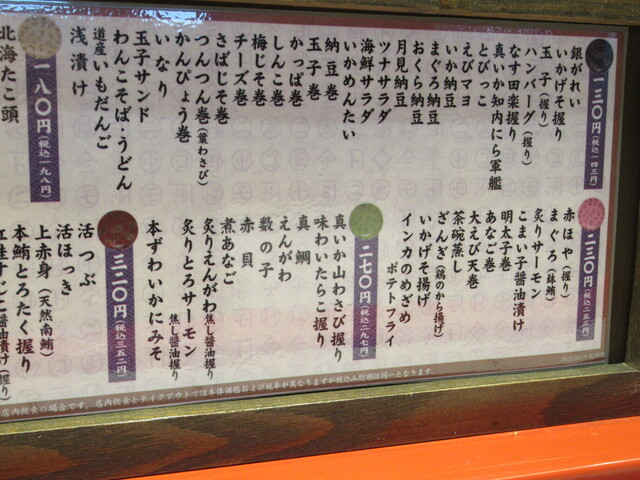 一三〇円(税込一四三円)
銀がれい
いかげそ握り
玉子(握り)
ハンバーグ(握り)
なす田楽握り
真いか知内にら軍艦
とびっこ
えびマヨ
いか納豆
まぐろ納豆
おくら納豆
月見納豆
ツナサラダ
海鮮サラダ
いかめんたい
納豆巻
玉子巻
かっぱ巻
しんこ巻
梅じそ巻
チーズ巻
さばじそ巻
つんつん巻(葉わさび)
かんぴょう巻
いなり
玉子サンド
わんこそば・うどん
道産いもだんご
浅漬け
一八〇円(税込一九八円)
北海たこ頭
二三〇円(税込二五三円)
赤ほや(握り)
まぐろ(鉢鮪)
炙りサーモン
こまい子醤油漬け
明太子巻
あなご巻
大えび天巻
茶碗蒸し
ざんぎ(鶏のから揚げ)
いかげそ揚げ
インカのめざめ
ポテトフライ
二七〇円(税込二九七円)
真いか山わさび握り
味わいたらこ握り
真鯛
えんがわ
数の子
赤貝
煮あなご
炙りえんがわ焦し醤油握り
炙りとろサーモン焦し醤油握り
本ずわいかにみそ
三二〇円(税込三五二円)
活つぶ
活ほっき
上赤身(天然南鮪)
本鮪とろたく握り
紅鮭すじこ醤油漬け(握り)
店内飲食の場合です。店内飲食とテイクアウトでは本体価格および税率が異なりますが税込み総額は同一となります。